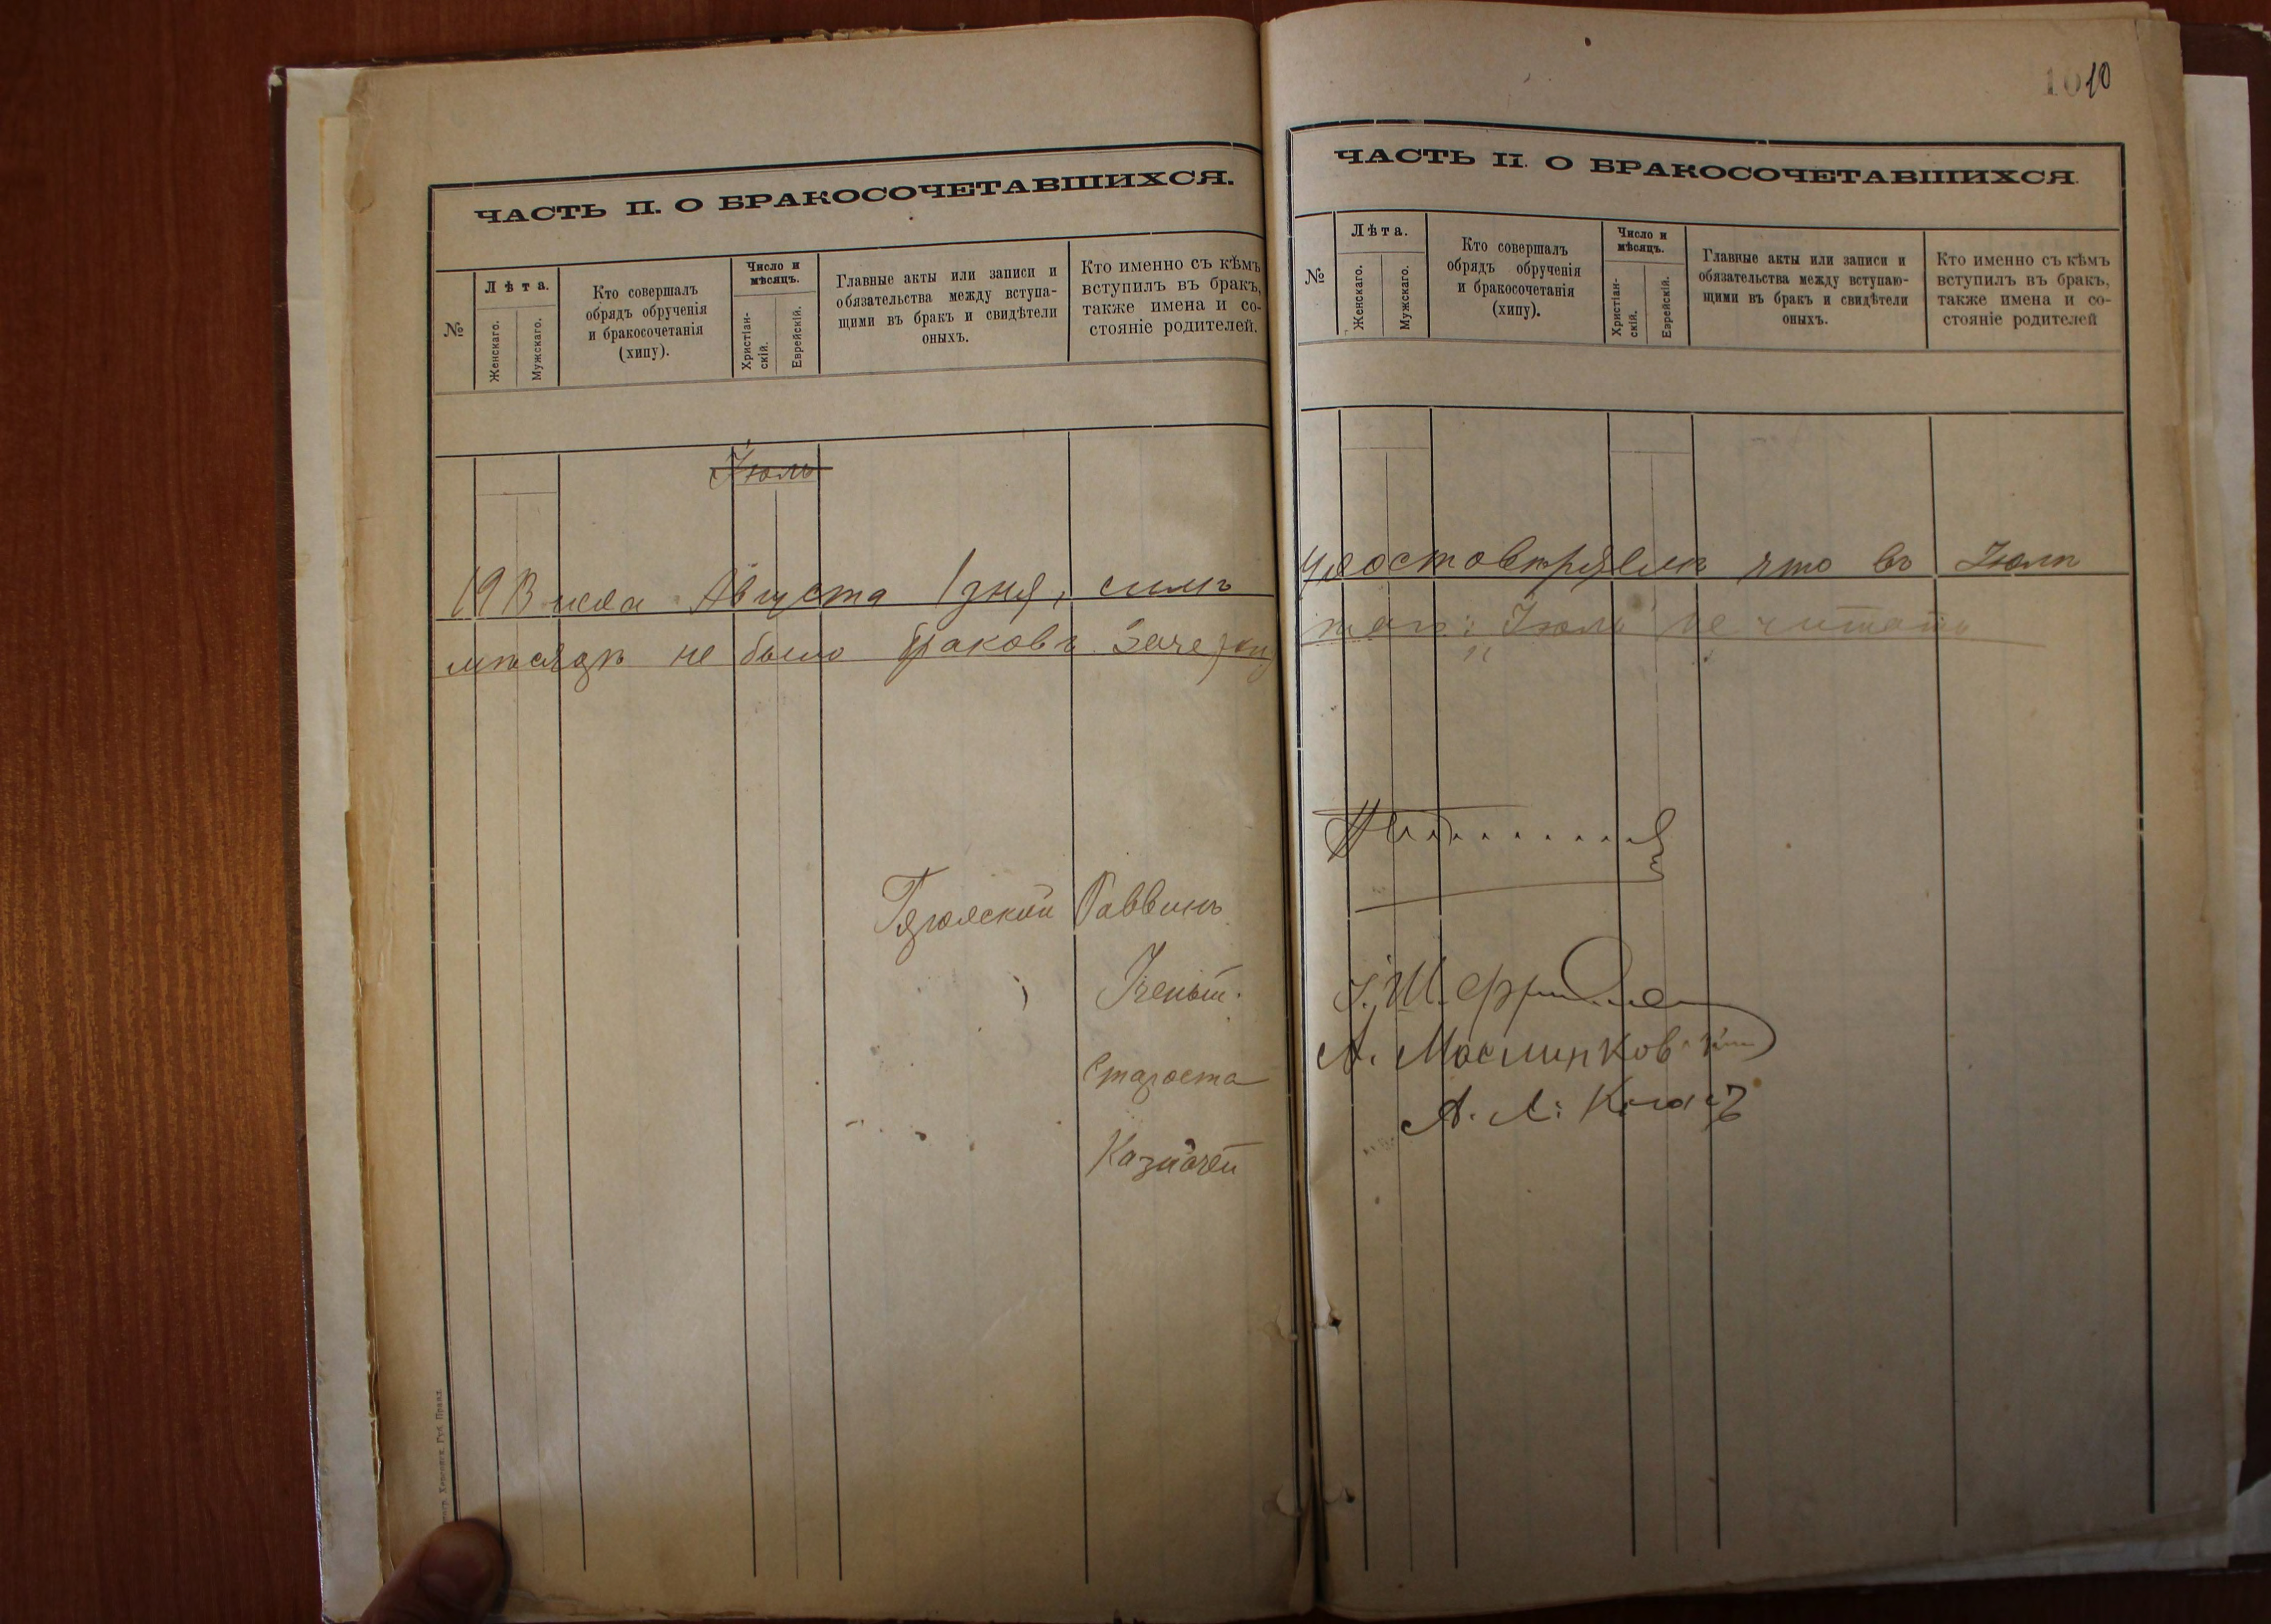 10 10
ЧАСТЬ II. О БРАКОСОЧЕТАВШИХСЯ.
№
Лѣта.
Женскаго.
Мужскаго.
Кто совершалъ
обрядъ обрученія
и бракосочетанія
(хипу).
Число и
мѣсяцъ.
Христіан-
скій.
Еврейскій.
Главные акты или записи и
обязательства между вступа-
щими въ бракъ и свидѣтели
оныхъ.
Кто именно съ кѣмъ
вступилъ въ бракъ,
также имена и со-
стояніе родителей.
Іюль
1913 года Августа 1 дня, симъ
мѣсяцѣ не было браковъ Зачеркн
Раввинъ
Староста
Казначей
Губ. Правл.
ЧАСТЬ II. О БРАКОСОЧЕТАВШИХСЯ.
№
Лѣта.
Женскаго.
Мужскаго.
Кто совершалъ
обрядъ обрученія
и бракосочетанія
(хипу).
Число и
мѣсяцъ.
Христіан-
скій.
Еврейскій.
Главные акты или записи и
обязательства между вступаю-
щими въ бракъ и свидѣтели
оныхъ.
Кто именно съ кѣмъ
вступилъ въ бракъ,
также имена и со-
стояніе родителей
удостовѣряемъ что въ Іюлѣ
Іюль не читать